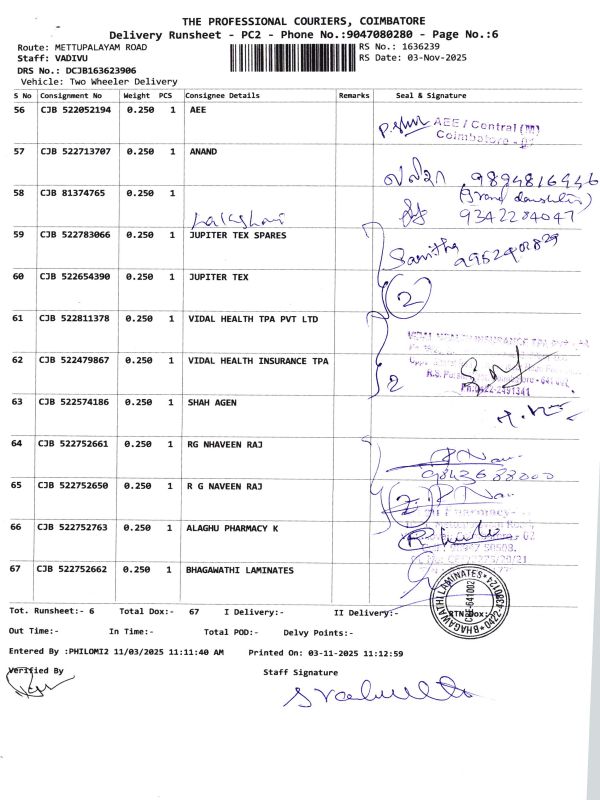 THE PROFESSIONAL COURIERS, COIMBATORE
Delivery Runsheet - PC2 - Phone No.:9047080280 - Page No.:6
Route: METTUPALAYAM ROAD RS No.: 1636239
Staff: VADIVU RS Date: 03-Nov-2025
DRS No.: DCJB163623906
Vehicle: Two Wheeler Delivery
S No Consignment No Weight PCS Consignee Details Remarks Seal & Signature
56 CJB 522052194 0.250 1 AEE
AEE / Central
Coimbatore
57 CJB 522713707 0.250 1 ANAND
9894816446
58 CJB 81374765 0.250 1
(Grand daughter)
9342284047
59 CJB 522783066 0.250 1 JUPITER TEX SPARES
60 CJB 522654390 0.250 1 JUPITER TEX
2
61 CJB 522811378 0.250 1 VIDAL HEALTH TPA PVT LTD
62 CJB 522479867 0.250 1 VIDAL HEALTH INSURANCE TPA
2
63 CJB 522574186 0.250 1 SHAH AGEN
64 CJB 522752661 0.250 1 RG NHAVEEN RAJ
65 CJB 522752650 0.250 1 R G NAVEEN RAJ
2
66 CJB 522752763 0.250 1 ALAGHU PHARMACY K
67 CJB 522752662 0.250 1 BHAGAWATHI LAMINATES
BHAGAWATHI LAMINATES
CBE-641002
Tot. Runsheet:- 6 Total Dox:- 67 I Delivery:- II Delivery:- RTN Dox:-
Out Time:- In Time:- Total POD:- Delvy Points:-
Entered By :PHILOMI2 11/03/2025 11:11:40 AM Printed On: 03-11-2025 11:12:59
Verified By Staff Signature